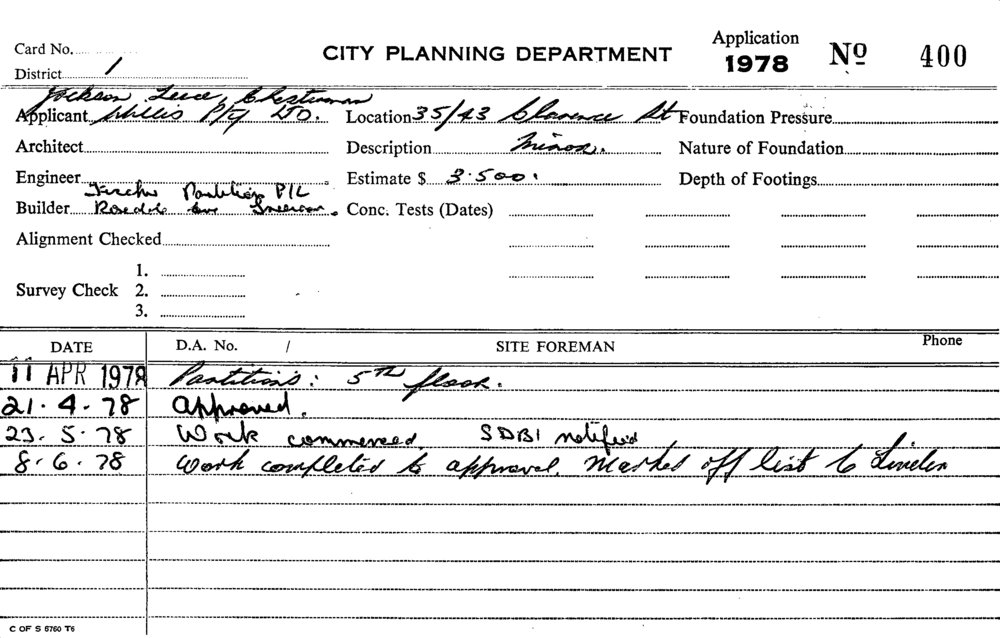 Card No.
CITY PLANNING DEPARTMENT
Application 1978 Nº 400
District 1
Jackson Teece Chesterman
Applicant Willis P/Ty LTD. Location 35/43 Clarence St Foundation Pressure
Architect Description Minor. Nature of Foundation
Engineer Estimate $ 3.500. Depth of Footings
Partition P/L
Builder Rosedale Ave Conc. Tests (Dates)
Alignment Checked
1.
Survey Check 2.
3.
DATE D.A. No. / SITE FOREMAN Phone
11 APR 1978 Partitions: 5TH floor.
21.4.78 Approved.
23.5.78 Work commenced SDBI notified
8.6.78 Work completed to approval. Marked off list to
C OF S 5760 T6